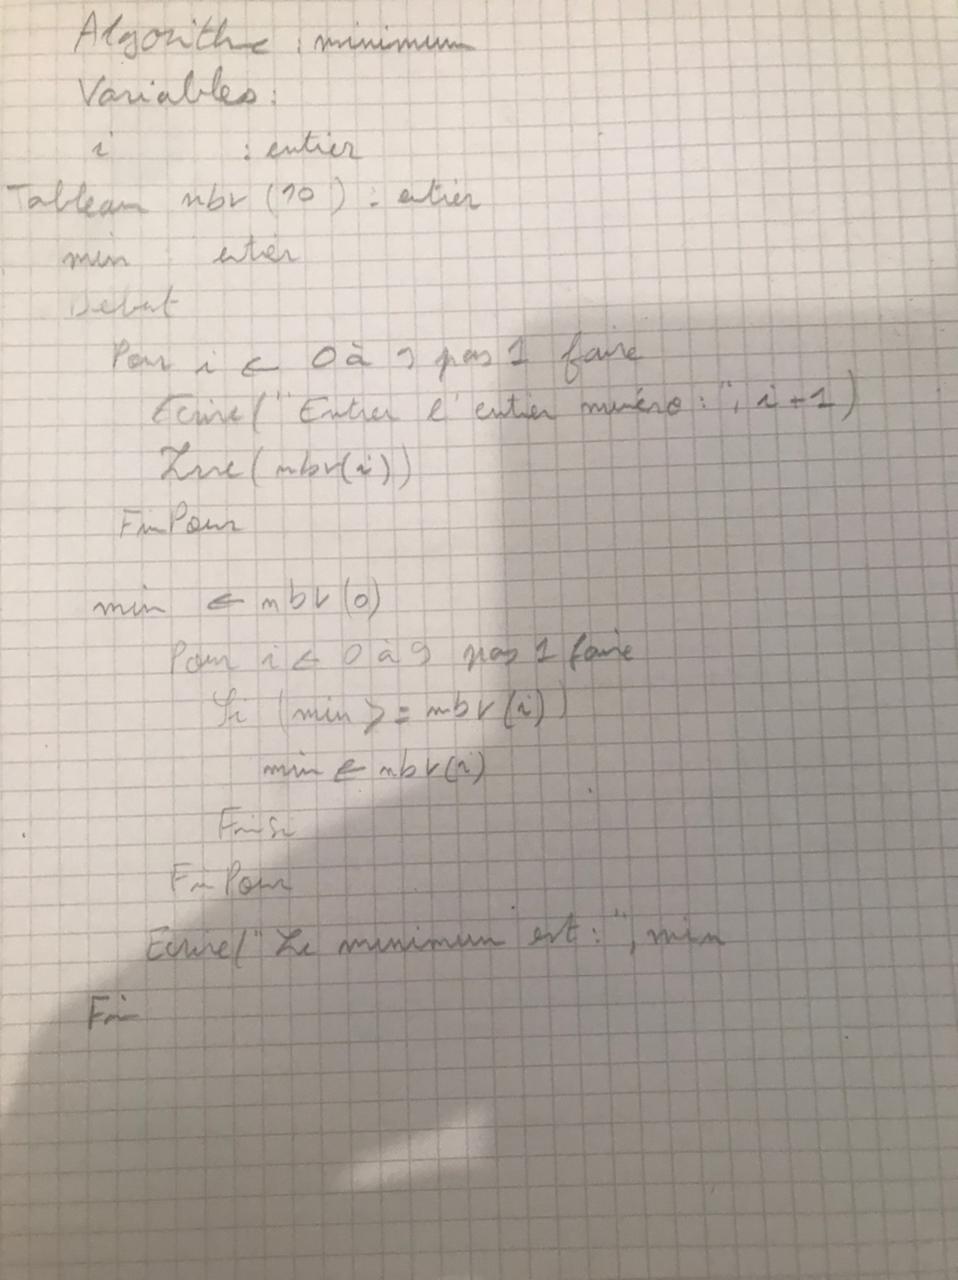 Algorithme : minimum
Variables :
i : entier
Tableau nbr (10) : entier
min entier
Debut
Pour i ← 0 à 9 pas 1 faire
Ecrire(" Entrer l'entier numéro : ", i + 1)
Lire(nbr(i))
FinPour
min ← nbr(0)
Pour i ← 0 à 9 pas 1 faire
Si (min >= nbr(i))
min ← nbr(i)
FinSi
FinPour
Ecrire(" Le minimum est : ", min
Fin